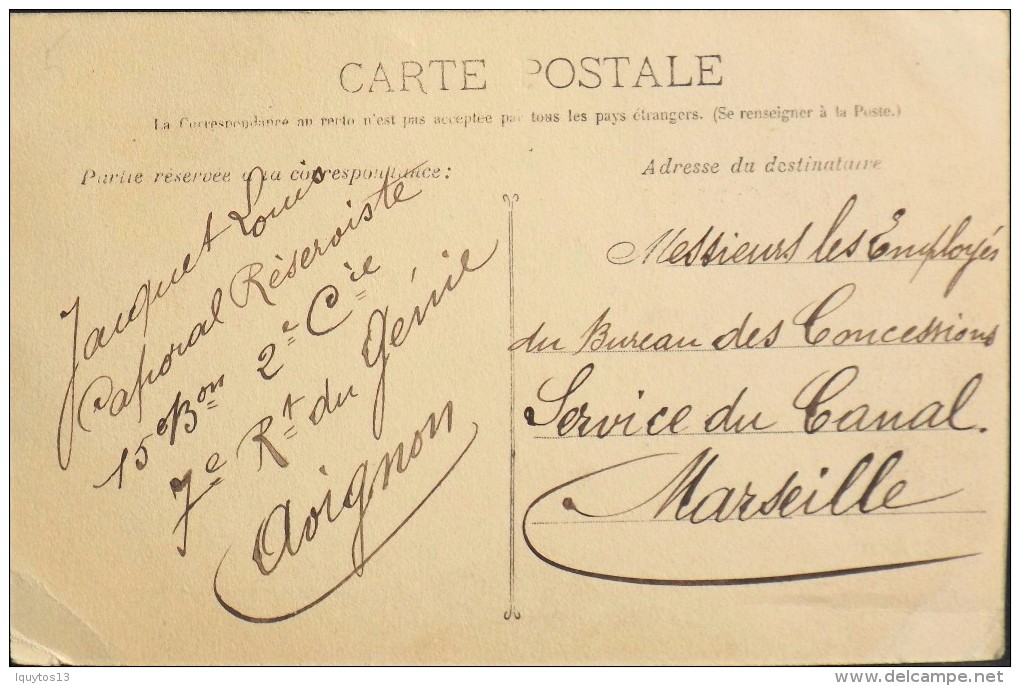 CARTE POSTALE
La Correspondance au recto n'est pas acceptée par tous les pays étrangers. (Se renseigner à la Poste.)
Partie réservée a la correspondance:
Jacquet Louis
Caporal Réserviste
15e Bon 2e Cie
7e Rt du Génie
Avignon
Adresse du destinataire
Messieurs les Employés
du Bureau des Concessions
Service du Canal.
Marseille
lquytos13
delcampe.net